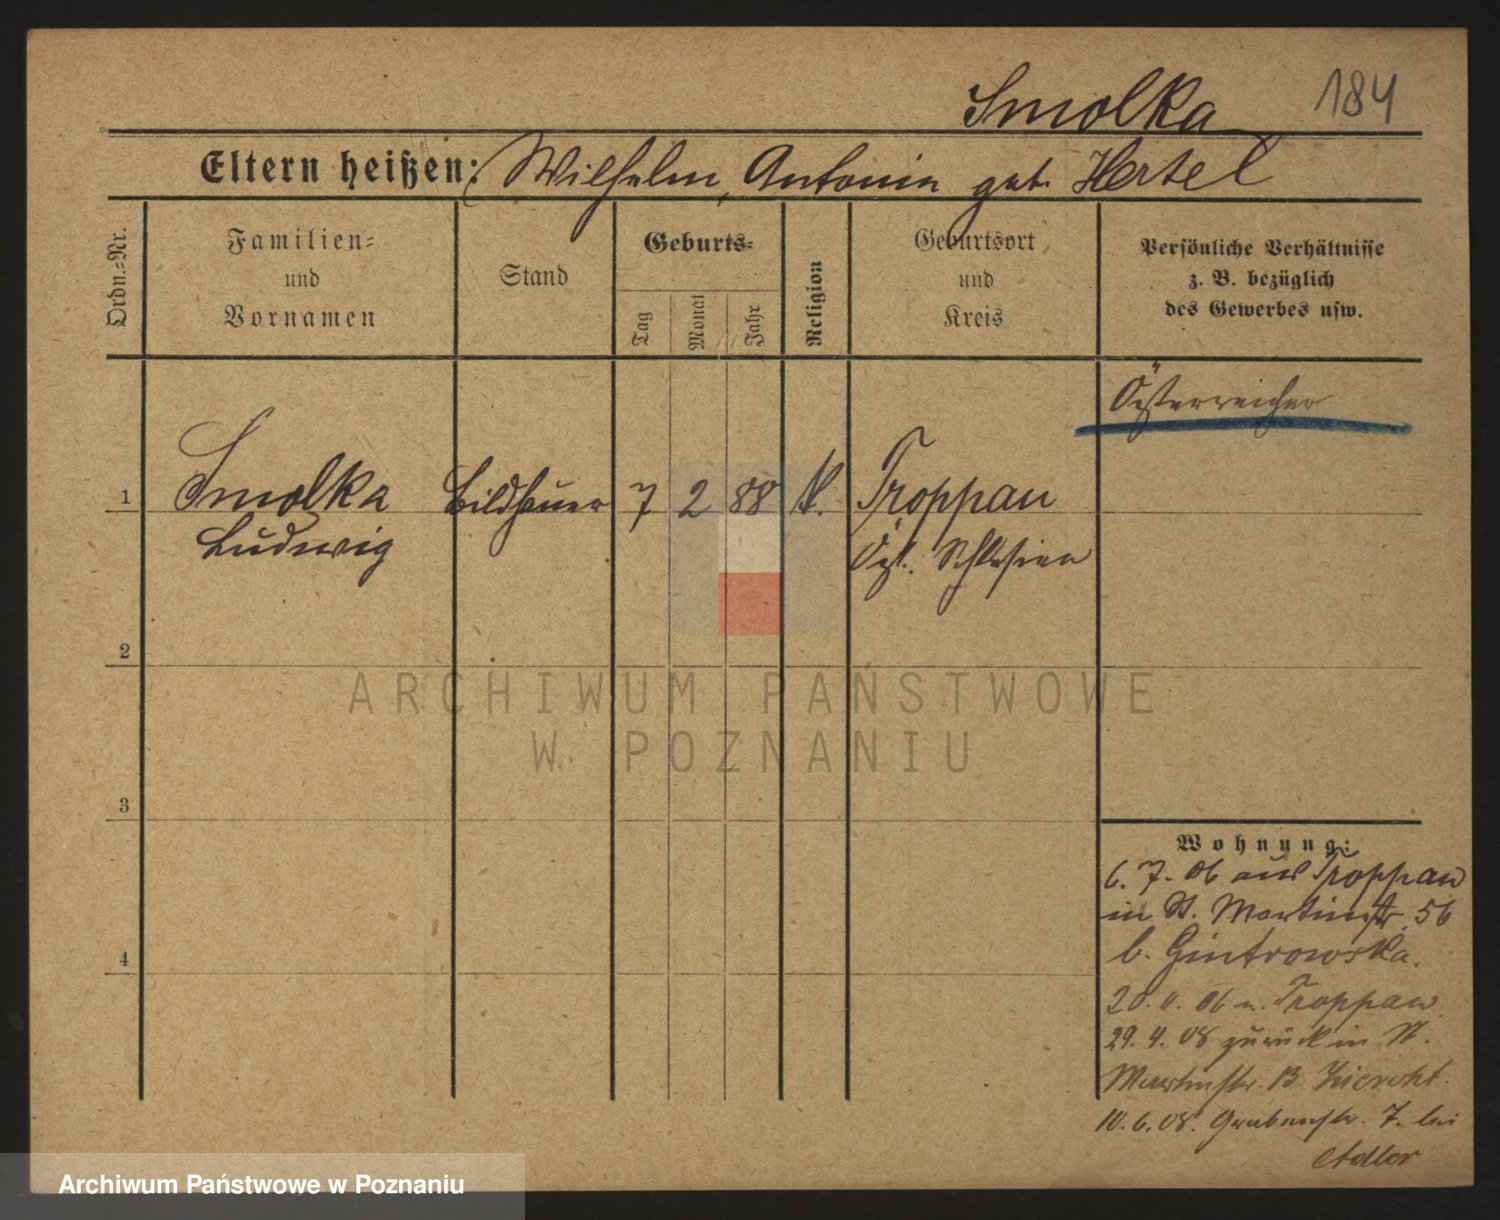 Smolka 184
Eltern heißen: Wilhelm, Antonin geb. Hertel
Ordn.=Nr.
Familien=
und
Vornamen
Stand
Geburts=
Tag
Monat
Jahr
Religion
Geburtsort
und
Kreis
Persönliche Verhältnisse
z. B. bezüglich
des Gewerbes usw.
Österreicher
1 Smolka Bildhauer 7 2 88 k. Troppau
Ludwig Öst. Schlesien
2
3
4
ARCHIWUM PAŃSTWOWE
W POZNANIU
Wohnung:
6. 7. 06 aus Troppau
in St. Martinstr. 56
b. Gintrowska.
20. 11. 06 n. Troppau
29. 4. 08 zurück in St.
Martinstr. 13
10. 6. 08. Grabenstr. 7. bei
Adler
Archiwum Państwowe w Poznaniu